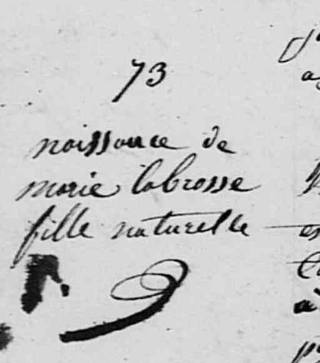 73
naissance de
marie labrosse
fille naturelle